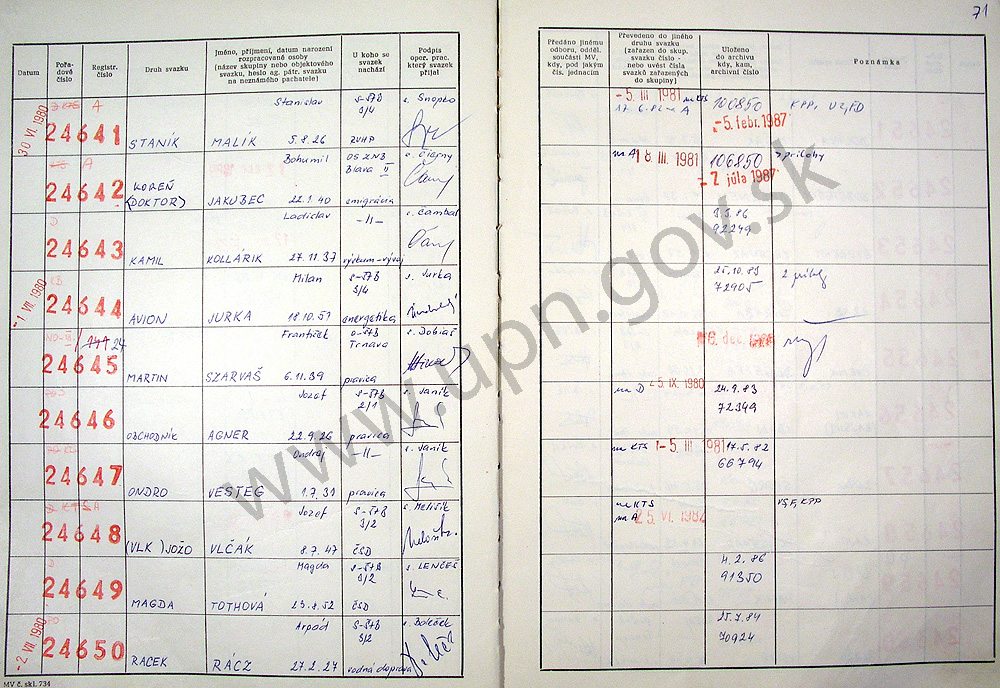 71
Datum
Pořadové číslo
Registr. číslo
Druh svazku
Jméno, příjmení, datum narození rozpracované osoby (název skupiny nebo objektového svazku, heslo ag. pátr. svazku na neznámého pachatele)
U koho se svazek nachází
Podpis oper. prac. který svazek přijal
Předáno jinému odboru, odděl. součásti MV, kdy, pod jakým čís. jednacím
Převedeno do jiného druhu svazku (zařazen do skup. svazku číslo - nebo uvést čísla svazků zařazených do skupiny)
Uloženo do archivu kdy, kam, archivní číslo
Poznámka
30 VI. 1980
A
Stanislav
24641
STANÍK
MALÍK
5.8.26
3/4
s. Snopko
-5. III 1981
106850
-5. febr. 1987
A
Bohumil
24642
KOREŇ
(DOKTOR)
JAKUBEC
22.1.40
emigrácia
18. III. 1981
106850
2 prílohy
-2 júla 1987
D
Ladislav
24643
KAMIL
KOLLÁRIK
27.11.37
výskum-vývoj
-II-
s. Čambal
92249
-1 VII. 1980
Milan
24644
AVION
JURKA
18.10.51
energetika
S-ŠTB
3/4
s. Jurka
72905
František
24645
MARTIN
SZARVAŠ
6.11.39
pravica
Trnava
s. Dobiaš
Jozef
24646
OBCHODNÍK
AGNER
22.9.26
pravica
S-ŠTB
2/1
s. Janík
na D
-5. IX. 1980
24.9.83
72349
Ondrej
24647
ONDRO
VESTEG
1.7.31
pravica
-II-
s. Janík
na KTS
-5. III 1981
17.5.82
66794
Jozef
24648
(VLK) JOŽO
VLČÁK
8.7.47
ČSD
S-ŠTB
3/2
na KTS
na A
25. VI. 1982
D
Magda
24649
MAGDA
TOTHOVÁ
23.8.52
ČSD
S-ŠTB
3/2
s. LENČEŠ
4.2.86
91350
-2 VII 1980
Arpád
24650
RACEK
RÁCZ
27.2.27
vodná doprava
S-ŠTB
3/2
s. Boleček
25.7.84
70924
MV č. skl. 734
www.upn.gov.sk